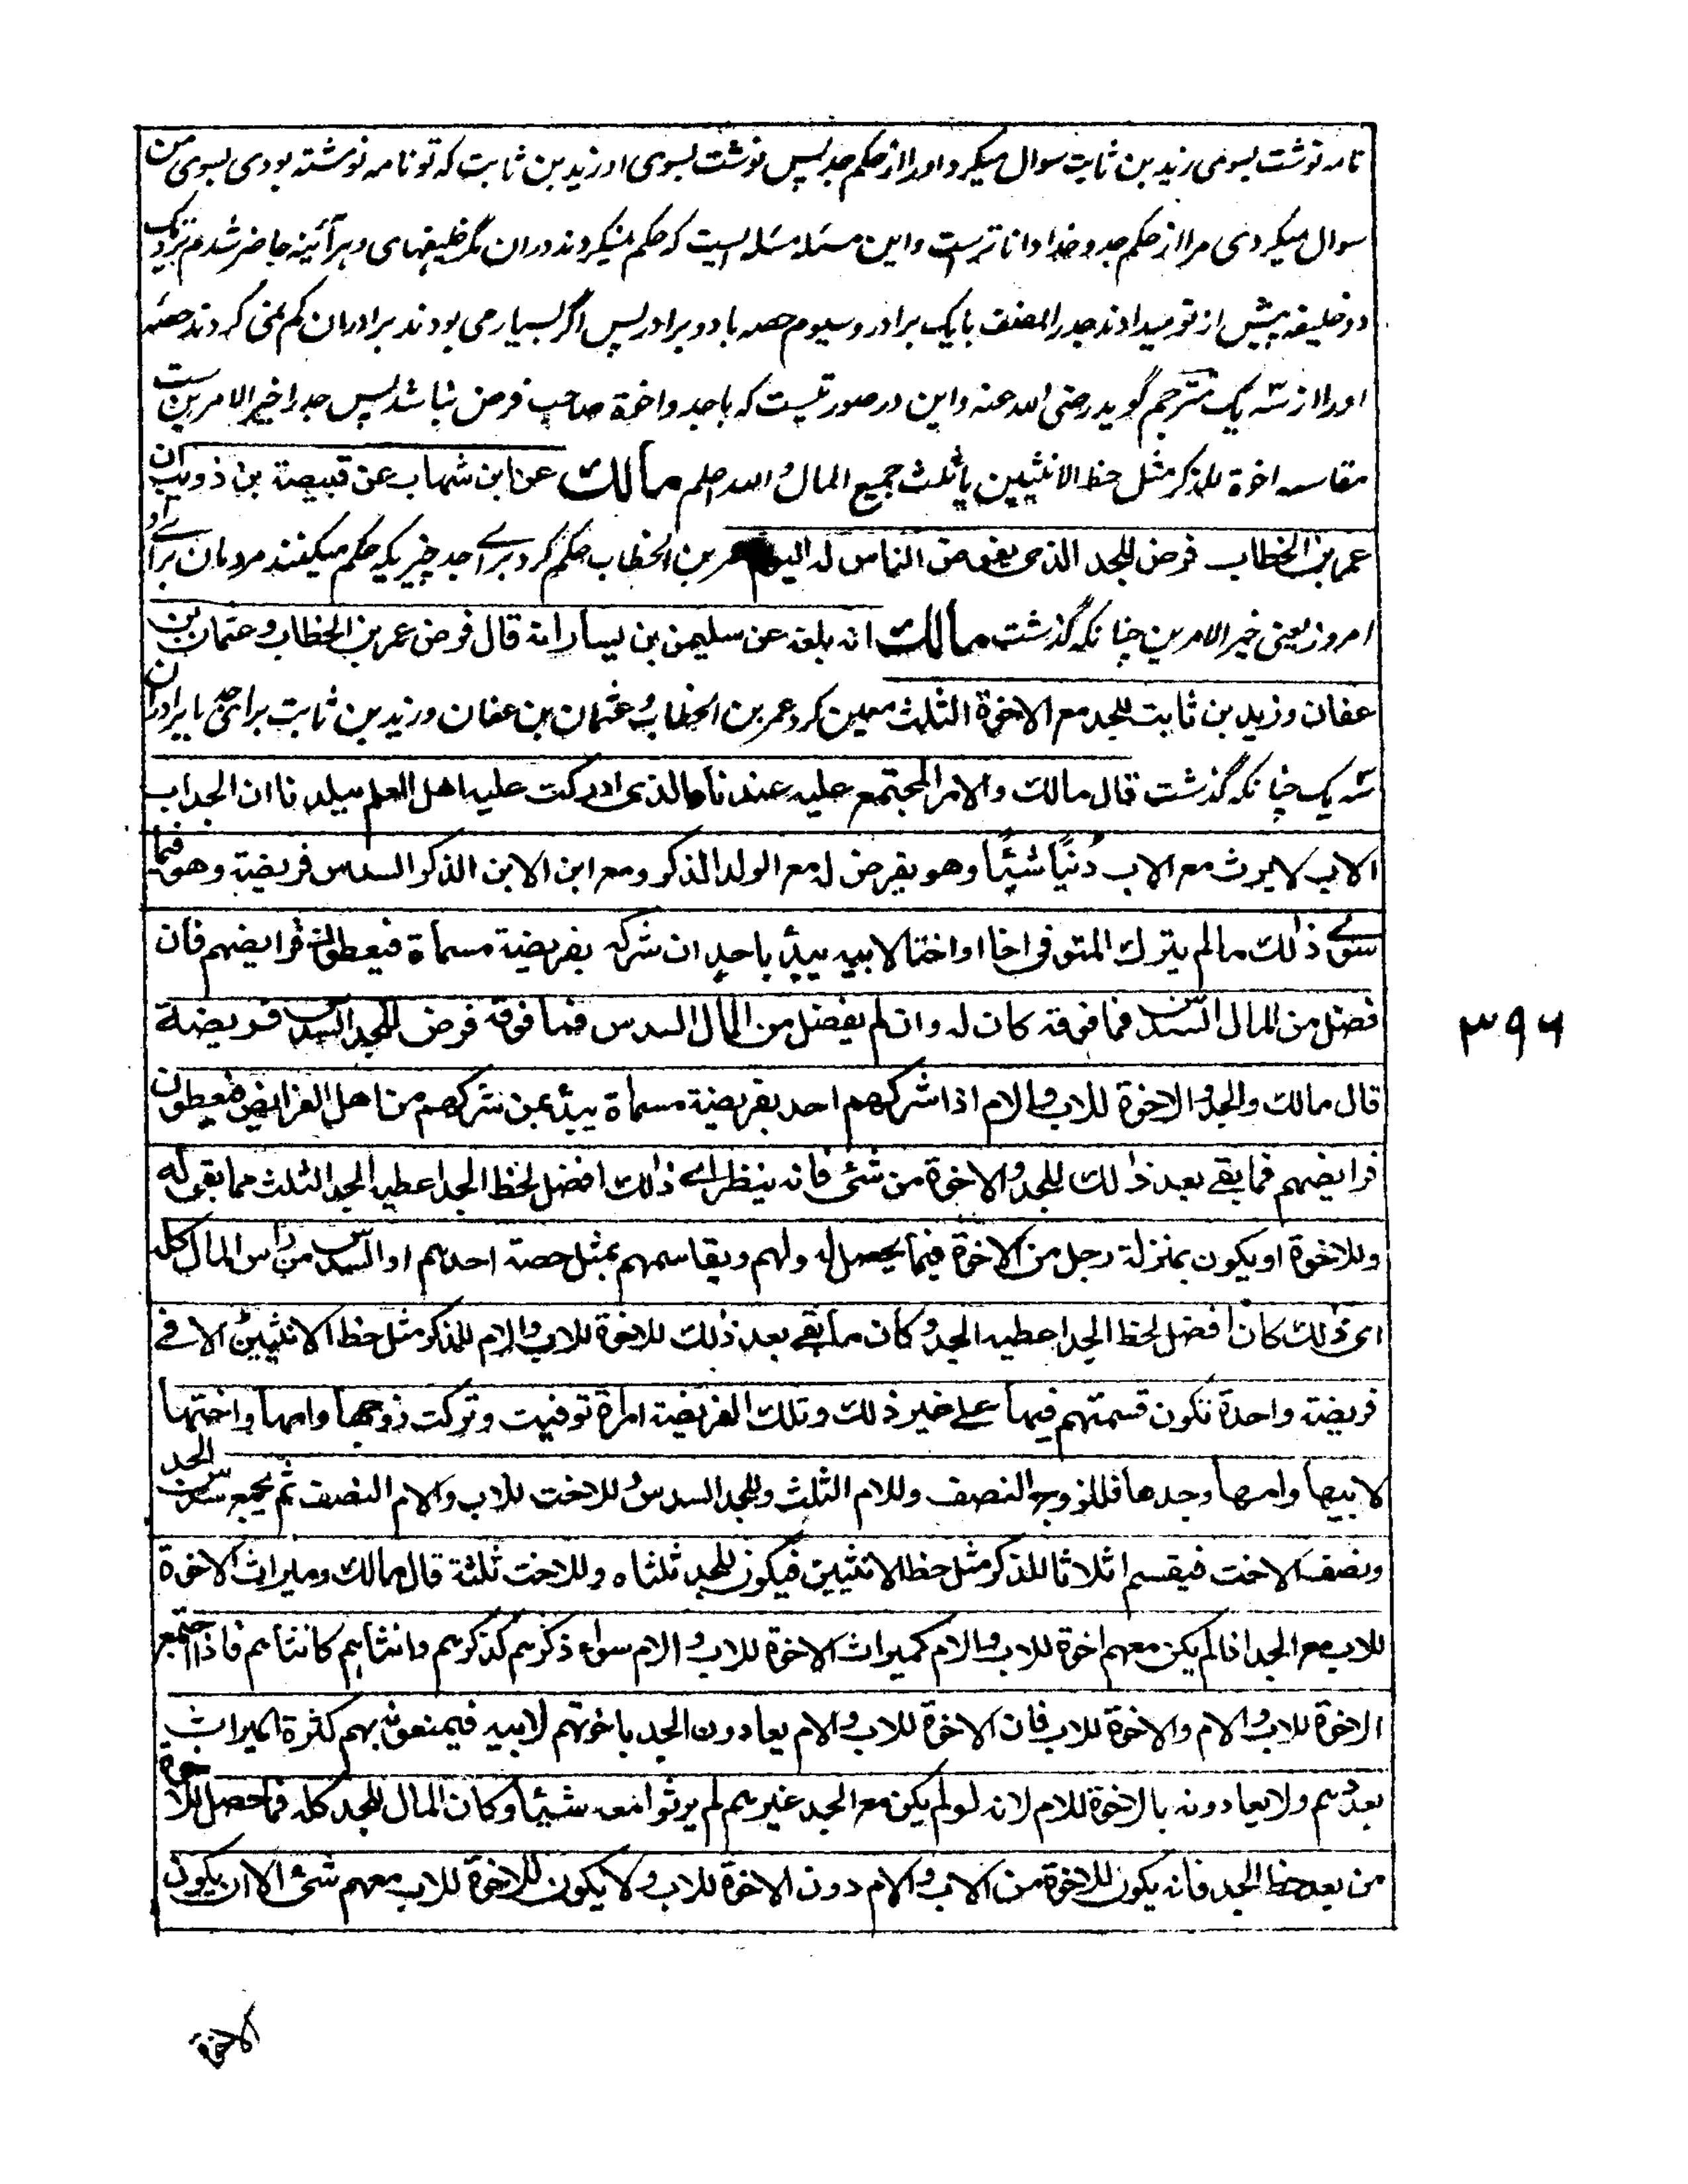 نامه نوشت بسوی زید بن ثابت سوال میکرد اورا از حکم جد پس نوشت بسوی او زید بن ثابت که تو نامه نوشته بودی بسوی من
سوال میکردی مرا از حکم جد و خدا داناترست و این مسئله مسئله ایست که حکم نمیکردند دران مگر خلیفهای و هر آئینه حاضر شدم نزدیک
دو خلیفه پیش از تو میدادند جد را نصف با یک برادر و سیوم حصه با دو برادر پس اگر بسیار می بودند برادران کم نمی کردند حصه
اورا از سه یک مترجم گوید رضی الله عنه و این در صورتیست که با جد و اخوة صاحب فرض نباشد پس جد را خیر الامرین ست
مقاسمه اخوة للذکر مثل حظ الانثیین یا ثلث جمیع المال والله اعلم مالك عن ابن شهاب عن قبیصة بن ذویب ان
عمر بن الخطاب فرض للجد الذی یفرض الناس له الیوم عمر بن الخطاب حکم کرد برای جد چیزیکه حکم میکنند مردمان برای او
امروز یعنی خیر الامرین چنانکه گذشت مالك انه بلغه عن سلیمن بن یسار انه قال فرض عمر بن الخطاب وعثمان بن
عفان وزید بن ثابت للجد مع الاخوة الثلث معین کرد عمر بن الخطاب و عثمان بن عفان و زید بن ثابت برای جد با برادران
سه یک چنانکه گذشت قال مالك والامر المجتمع علیه عندنا والذی ادرکت علیه اهل العلم ببلدنا ان الجد اب
الاب لا یرث مع الاب دنیا شیئا وهو یفرض له مع الولد الذکر ومع ابن الابن الذکر السدس فریضة وهو فیما
سوی ذلك ما لم یترك المتوفی اخا او اختا لابیه یبدّأ باحدٍ ان شرکه بفریضة مسماة فیعطون فرایضهم فان
فضل من المال السدس فما فوقه کان له وان لم یفضل من المال السدس فما فوقه فرض للجد السدس فریضة
قال مالك والجد والاخوة للاب والام اذا شرکهم احد بفریضة مسماة یبدّأ بمن شرکهم من اهل الفرایض فیعطون
فرایضهم فما بقی بعد ذلك للجد والاخوة من شئ فانه ینظر ای ذلك افضل لحظ الجد اعطیه الجد الثلث مما بقی له
وللاخوة او یکون بمنزلة رجل من الاخوة فیما یحصل له ولهم ویقاسمهم بمثل حصة احدهم او السدس من راس المال کله
ای ذلك کان افضل لحظ الجد اعطیه الجد وکان ما بقی بعد ذلك للاخوة للاب والام للذکر مثل حظ الانثیین الا فی
فریضة واحدة تکون قسمتهم فیها علی غیر ذلك وتلك الفریضة امراة توفیت وترکت زوجها وامها واختها
لابیها وامها وجدها فللزوج النصف وللام الثلث وللجد السدس وللاخت للاب والام النصف ثم یجمع سدس الجد
ونصف الاخت فیقسم اثلاثا للذکر مثل حظ الانثیین فیکون للجد ثلثاه وللاخت ثلثة قال مالك ومیراث الاخوة
للاب مع الجد اذا لم یکن معهم اخوة للاب والام کمیراث الاخوة للاب والام سواء ذکرهم کذکرهم وانثاهم کانثاهم فاذا اجتمع
الاخوة للاب والام والاخوة للاب فان الاخوة للاب والام یعادون الجد باخوتهم لابیه فیمنعونه بهم کثرة المیراث
بعدّهم ولا یعادونه بالاخوة للام لانه لو لم یکن مع الجد غیرهم لم یرثوا معه شیئا وکان المال للجد کله فما حصل للاخوة
من بعد حظ الجد فانه یکون للاخوة من الاب والام دون الاخوة للاب ولا یکون للاخوة للاب معهم شئ الا ان یکون
۳۹۶
الاخوة